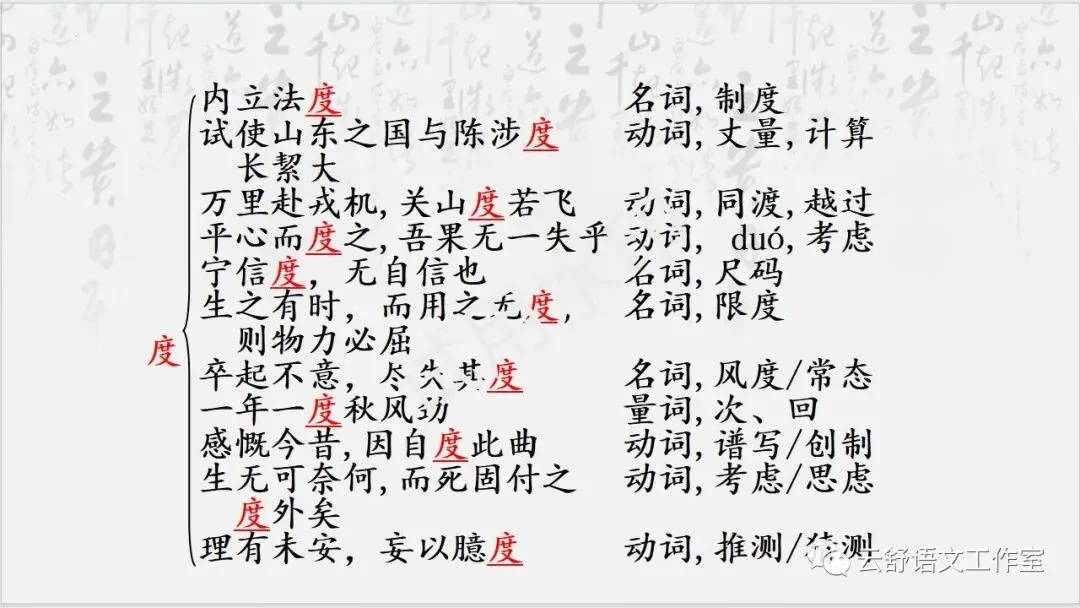 内立法度 名词,制度
试使山东之国与陈涉度 动词,丈量,计算
长絜大
万里赴戎机,关山度若飞 动词,同渡,越过
平心而度之,吾果无一失乎 动词, duó,考虑
宁信度，无自信也 名词,尺码
生之有时，而用之无度， 名词,限度
则物力必屈
度
卒起不意，尽失其度 名词,风度/常态
一年一度秋风劲 量词,次、回
感慨今昔,因自度此曲 动词,谱写/创制
生无可奈何,而死固付之 动词,考虑/思虑
度外矣
理有未安，妄以臆度 动词,推测/猜测
云舒语文工作室